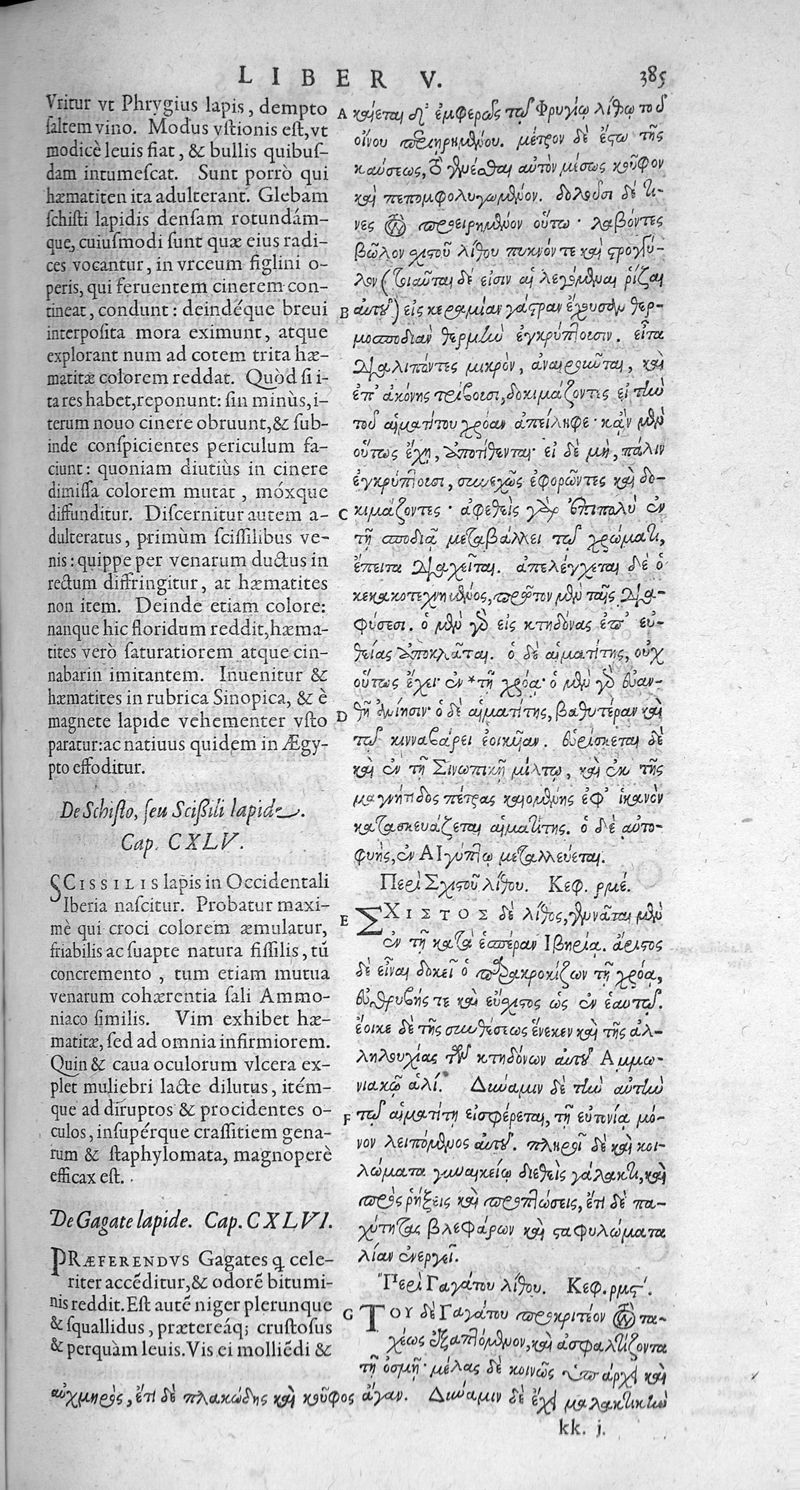 LIBER V.
385
Vritur vt Phrygius lapis, dempto
saltem vino. Modus vstionis est, vt
modicè leuis fiat, & bullis quibus-
dam intumescat. Sunt porrò qui
hæmatiten ita adulterant. Glebam
schisti lapidis densam rotundám-
que, cuiusmodi sunt quæ eius radi-
ces vocantur, in vrceum figlini o-
peris, qui feruentem cinerem con-
tineat, condunt: deindéque breui
interposita mora eximunt, atque
explorant num ad cotem trita hæ-
matitæ colorem reddat. Quòd si i-
ta res habet, reponunt: sin minùs, i-
terum nouo cinere obruunt, & sub-
inde conspicientes periculum fa-
ciunt: quoniam diutiùs in cinere
dimissa colorem mutat, móxque
diffunditur. Discernitur autem a-
dulteratus, primùm scissilibus ve-
nis: quippe per venarum ductus in
rectum diffringitur, at hæmatites
non item. Deinde etiam colore:
nanque hic floridum reddit, hæma-
tites verò saturatiorem atque cin-
nabarin imitantem. Inuenitur &
hæmatites in rubrica Sinopica, & è
magnete lapide vehementer vsto
paratur: ac natiuus quidem in Ægy-
pto effoditur.
De Schisto, seu Scissili lapide.
Cap. CXLV.
SCISSILIS lapis in Occidentali
Iberia nascitur. Probatur maxi-
mè qui croci colorem æmulatur,
friabilis ac suapte natura fissilis, tū
concremento, tum etiam mutua
venarum cohærentia sali Ammo-
niaco similis. Vim exhibet hæ-
matitæ, sed ad omnia infirmiorem.
Quin & caua oculorum vlcera ex-
plet muliebri lacte dilutus, itém-
que ad diruptos & procidentes o-
culos, insupérque crassitiem gena-
rum & staphylomata, magnoperè
efficax est.
De Gagate lapide. Cap. CXLVI.
PRÆFERENDVS Gagates q cele-
riter accēditur, & odorē bitumi-
nis reddit. Est autē niger plerunque
& squallidus, prætereáq; crustosus
& perquàm leuis. Vis ei molliēdi &
A καίεται δ' ἐμφερῶς τῷ Φρυγίῳ λίθῳ τοῦ
οἴνου περιῃρημένου. μέτρον δὲ ἔστω τῆς
καύσεως, τὸ γενέσθαι αὐτὸν μέσως κοῦφον
καὶ πεπομφολυγωμένον. δολοῦσι δέ τι-
νες τὸν προειρημένον οὕτω· λαβόντες
βῶλον σχιστοῦ λίθου πυκνόν τε καὶ στρογγύ-
λον (τοιαῦται δέ εἰσιν αἱ λεγόμεναι ῥίζαι
B αὐτοῦ) εἰς κεραμίαν γάστραν ἔχουσαν θερ-
μοσποδιὰν θερμὴν ἐγκρύπτουσιν. εἶτα
διαλιπόντες μικρὸν, ἀναιροῦνται, καὶ
ἐπ' ἀκόνης τρίβουσι, δοκιμάζοντες εἰ τὴν
τοῦ αἱματίτου χρόαν ἀπείληφε· κἂν μὲν
οὕτως ἔχῃ, ἀποτίθενται· εἰ δὲ μὴ, πάλιν
ἐγκρύπτουσι, συνεχῶς ἐφορῶντες καὶ δο-
C κιμάζοντες· ἀφεθεὶς γὰρ ἐπιπολὺ ἐν
τῇ σποδιᾷ μεταβάλλει τῷ χρώματι,
ἔπειτα διαχεῖται. ἀπελέγχεται δὲ ὁ
κεκακοτεχνημένος, πρῶτον μὲν ταῖς δια-
φύσεσι. ὁ μὲν γὰρ εἰς κτηδόνας ἐπ' εὐ-
θείας ἀποκλᾶται. ὁ δὲ αἱματίτης, οὐχ
οὕτως ἔχει· ἐν * τῇ χρόᾳ· ὁ μὲν γὰρ εὐαν-
D θῆ ἀνίησιν· ὁ δὲ αἱματίτης, βαθυτέραν καὶ
τῷ κινναβάρει ἐοικυῖαν. εὑρίσκεται δὲ
καὶ ἐν τῇ Σινωπικῇ μίλτῳ, καὶ ἐκ τῆς
μαγνήτιδος πέτρας καιομένης ἐφ' ἱκανὸν
κατασκευάζεται αἱματίτης. ὁ δὲ αὐτο-
φυὴς, ἐν Αἰγύπτῳ μεταλλεύεται.
Περὶ Σχιστοῦ λίθου. Κεφ. ρμέ.
E ΣΧΙΣΤΟΣ δὲ λίθος, γεννᾶται μὲν
ἐν τῇ κατὰ ἑσπέραν Ἰβηρίᾳ. ἄριστος
δὲ εἶναι δοκεῖ ὁ παρακροκίζων τῇ χρόᾳ,
εὐθρυβής τε καὶ εὔσχιστος ὡς ἐν ἑαυτῷ.
ἔοικε δὲ τῆς συνθέσεως ἕνεκεν καὶ τῆς ἀλ-
ληλουχίας τῶν κτηδόνων αὐτοῦ Ἀμμω-
νιακῷ ἁλί. Δύναμιν δὲ τὴν αὐτὴν
F τῷ αἱματίτῃ εἰσφέρεται, τῇ εὐτονίᾳ μό-
νον λειπόμενος αὐτοῦ. πληροῖ δὲ καὶ κοι-
λώματα γυναικείῳ διεθεὶς γάλακτι, καὶ
πρὸς ῥήξεις καὶ προπτώσεις, ἔτι δὲ πα-
χύτητας βλεφάρων καὶ σταφυλώματα
λίαν ἐνεργεῖ.
Περὶ Γαγάτου λίθου. Κεφ. ρμς'.
G ΤΟΥ δὲ Γαγάτου προκριτέον τὸν τα-
χέως ἐξαπτόμενον, καὶ ἀσφαλτίζοντα
τῇ ὀσμῇ· μέλας δὲ κοινῶς ὑπάρχει καὶ
αὐχμηρὸς, ἔτι δὲ πλακώδης καὶ κοῦφος ἄγαν. Δύναμιν δὲ ἔχει μαλακτικὴν
kk. j.